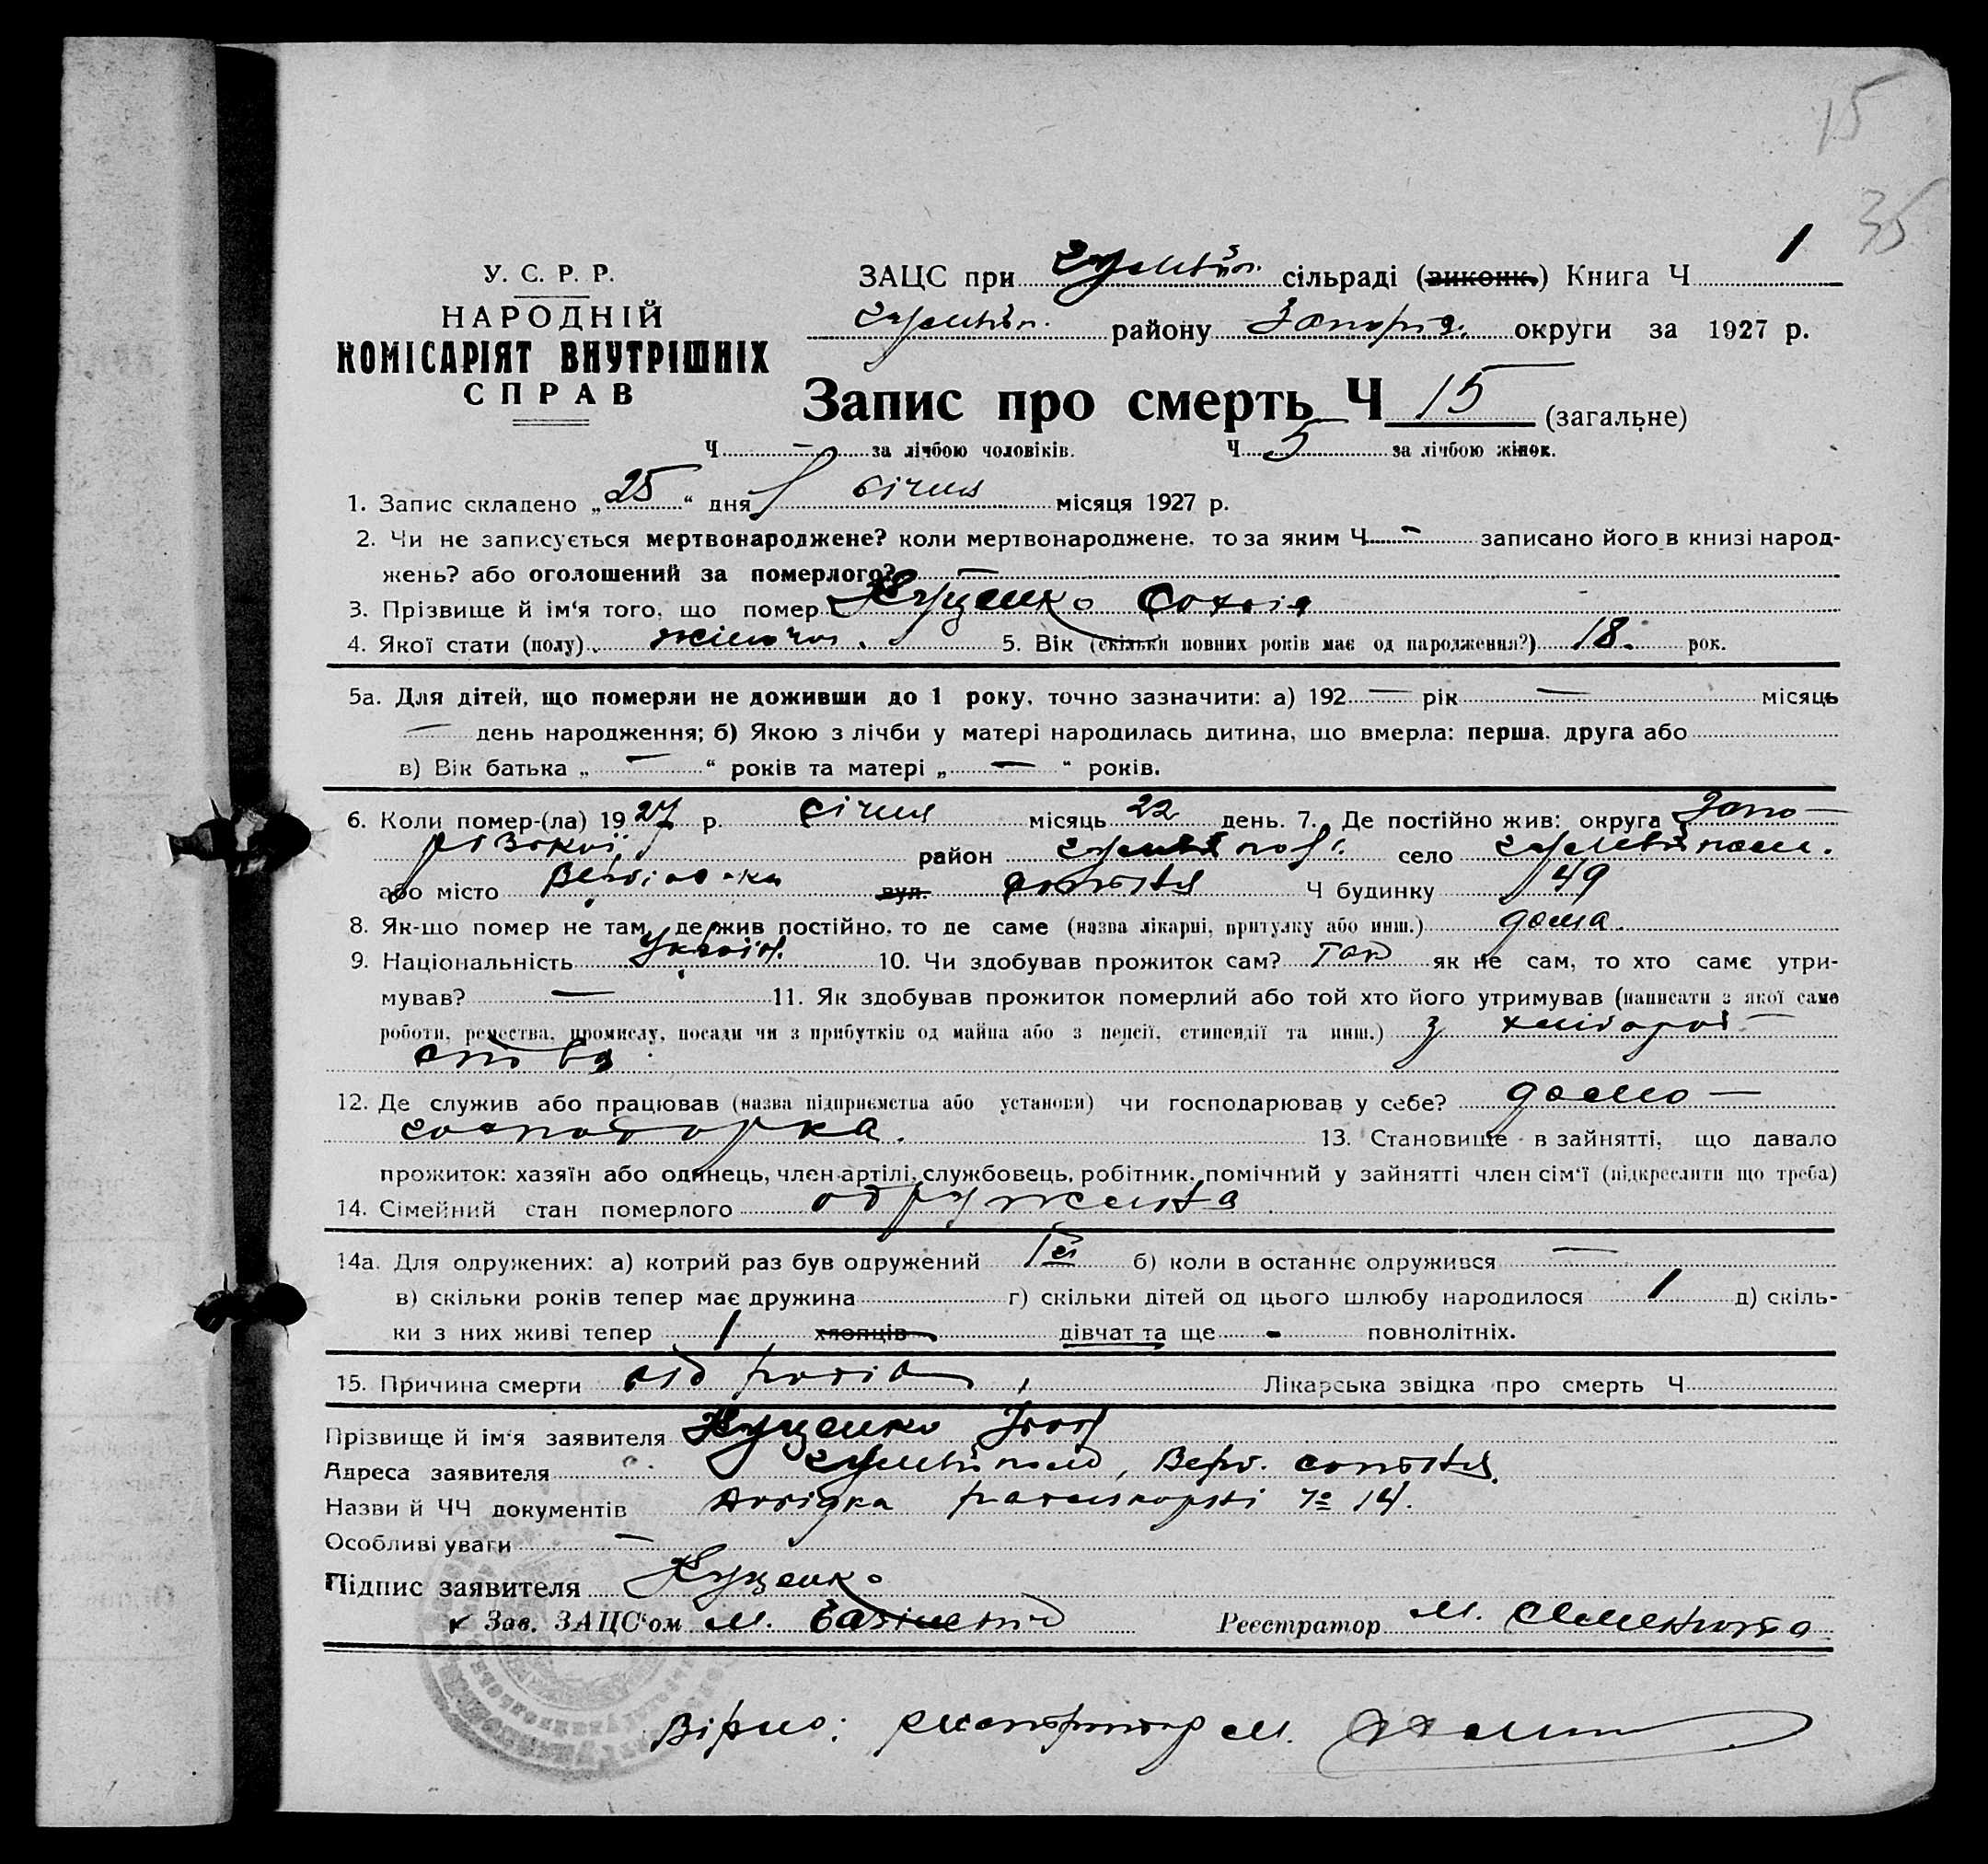 15
35
У. С. Р. Р.
НАРОДНІЙ
КОМІСАРІЯТ ВНУТРІШНІХ
СПРАВ
ЗАЦС при Гуляйпіл. сільраді (виконк.) Книга Ч 1
Гуляйпіл. району Запоріз. округи за 1927 р.
Запис про смерть Ч 15 (загальне)
Ч — за лічбою чоловіків. Ч 5 за лічбою жінок.
1. Запис складено „25“ дня січня місяця 1927 р.
2. Чи не записується мертвонароджене? коли мертвонароджене, то за яким Ч — записано його в книзі народ-
жень? або оголошений за померлого? —
3. Прізвище й ім‘я того, що помер Куценко Софія
4. Якої стати (полу) жіноча. 5. Вік (скільки повних років має од народження?) 18. рок.
5а. Для дітей, що померли не доживши до 1 року, точно зазначити: а) 192 — рік — місяць
— день народження; б) Якою з лічби у матері народилась дитина, що вмерла: перша, друга або
в) Вік батька „ — “ років та матері „ — “ років.
6. Коли помер-(ла) 1927 р. січня місяць 22 день. 7. Де постійно жив: округа Запо-
різської район Гуляйпол. село Гуляйполе.
або місто вул. сотня Ч будинку 49
8. Як-що помер не там, де жив постійно, то де саме (назва лікарні, притулку або инш.) дома.
9. Національність Україн. 10. Чи здобував прожиток сам? так як не сам, то хто саме утри-
мував? — 11. Як здобував прожиток померлий або той хто його утримував (написати з якої саме
роботи, ремества, промислу, посади чи з прибутків од майна або з пенсії, стипендії та инш.) з хлібороб-
ства
12. Де служив або працював (назва підприємства або установи) чи господарював у себе? домо-
господарка. 13. Становище в зайнятті, що давало
прожиток: хазяїн або одинець, член артілі, службовець, робітник, помічний у зайнятті член сім‘ї (підкреслити що треба)
14. Сімейний стан померлого одружена
14а. Для одружених: а) котрий раз був одружений б) коли в останнє одружився —
в) скільки років тепер має дружина г) скільки дітей од цього шлюбу народилося 1 д) скіль-
ки з них живі тепер 1 хлопців дівчат та ще - повнолітніх.
15. Причина смерти від родів Лікарська звідка про смерть Ч
Прізвище й ім‘я заявителя Куценко
Адреса заявителя с. Гуляйполе, сотня
Назви й ЧЧ документів № 14.
Особливі уваги —
Підпис заявителя Куценко
Зав. ЗАЦС‘ом М. Реєстратор М.
Вірно: реєстратор М.